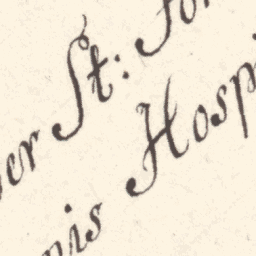 er St: Jo
nis Hospi